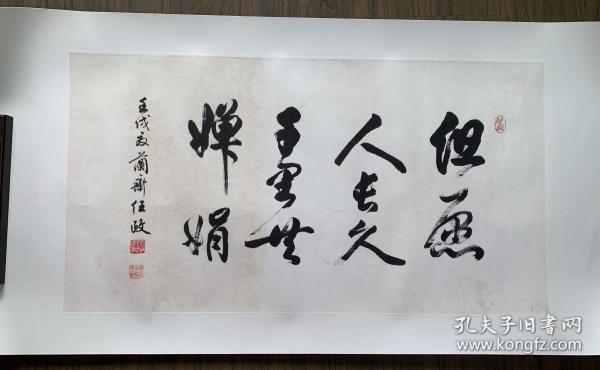 但愿
人长久
千里共
婵娟
壬戌夜兰斋任政
孔夫子旧书网
www.kongfz.com